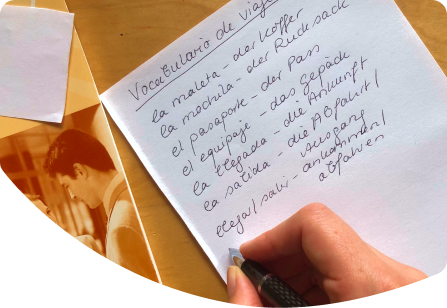 Vocabulario de viaje
la maleta - der Koffer
la mochila - der Rucksack
el pasaporte - der Pass
el equipaje - das gepäck
la llegada - die Ankunft
la salida - die Abfahrt /
Ausgang
llegar / salir - ankommen /
abfahren